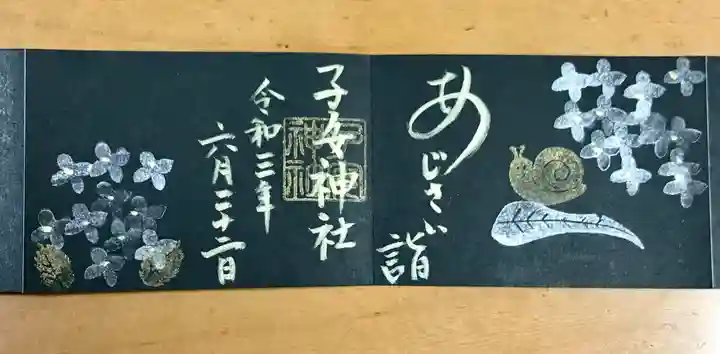 あじさい詣
子安神社
令和三年
六月二十二日